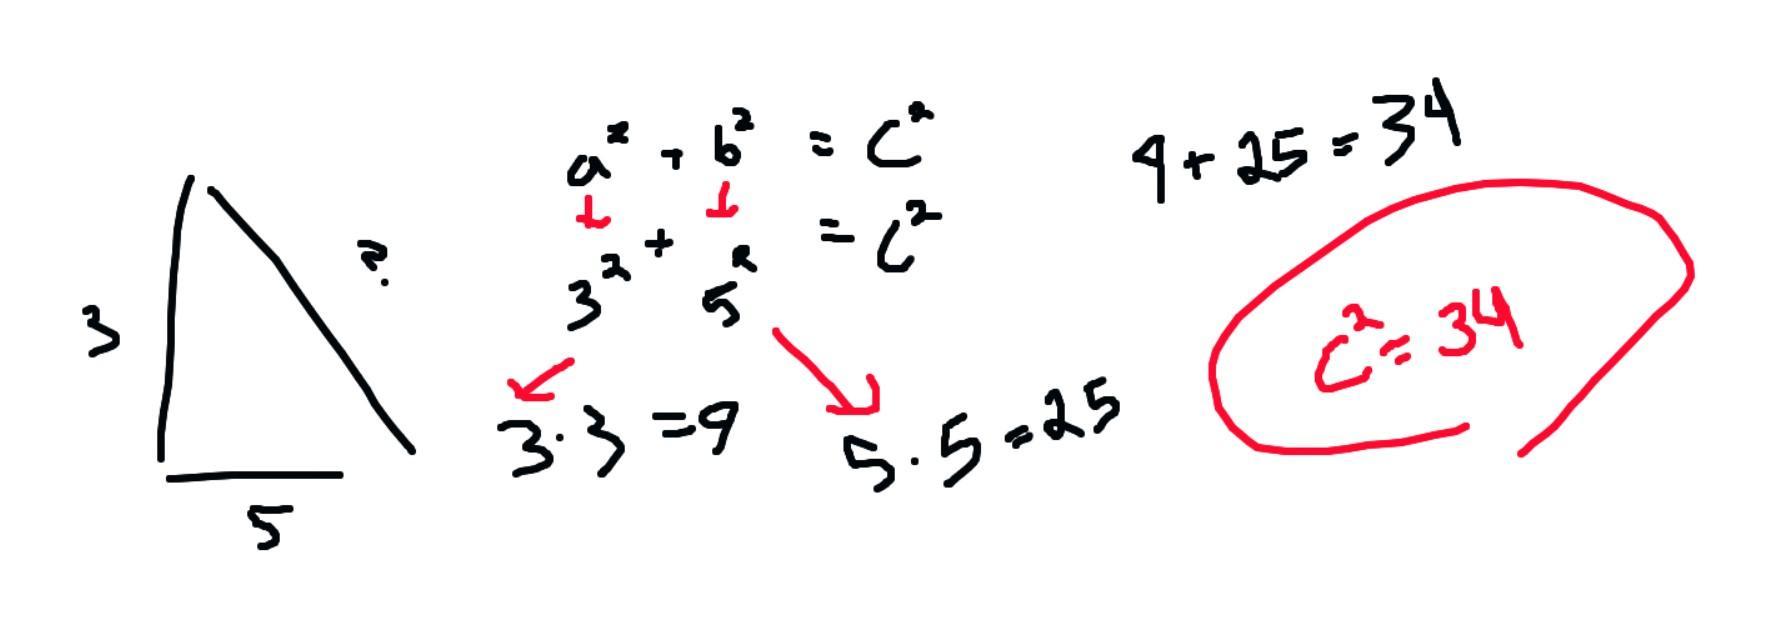 a² + b² = c²
3² + 5² = c²
3 · 3 = 9
5 · 5 = 25
9 + 25 = 34
c² = 34
3
?
5